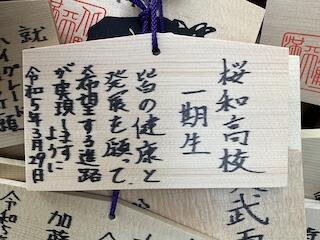 桜和高校
一期生
皆の健康と
発展を願って
希望する進路
が実現します
ように
令和5年3月29日
就
ハイグレード
令和5
加藤
武